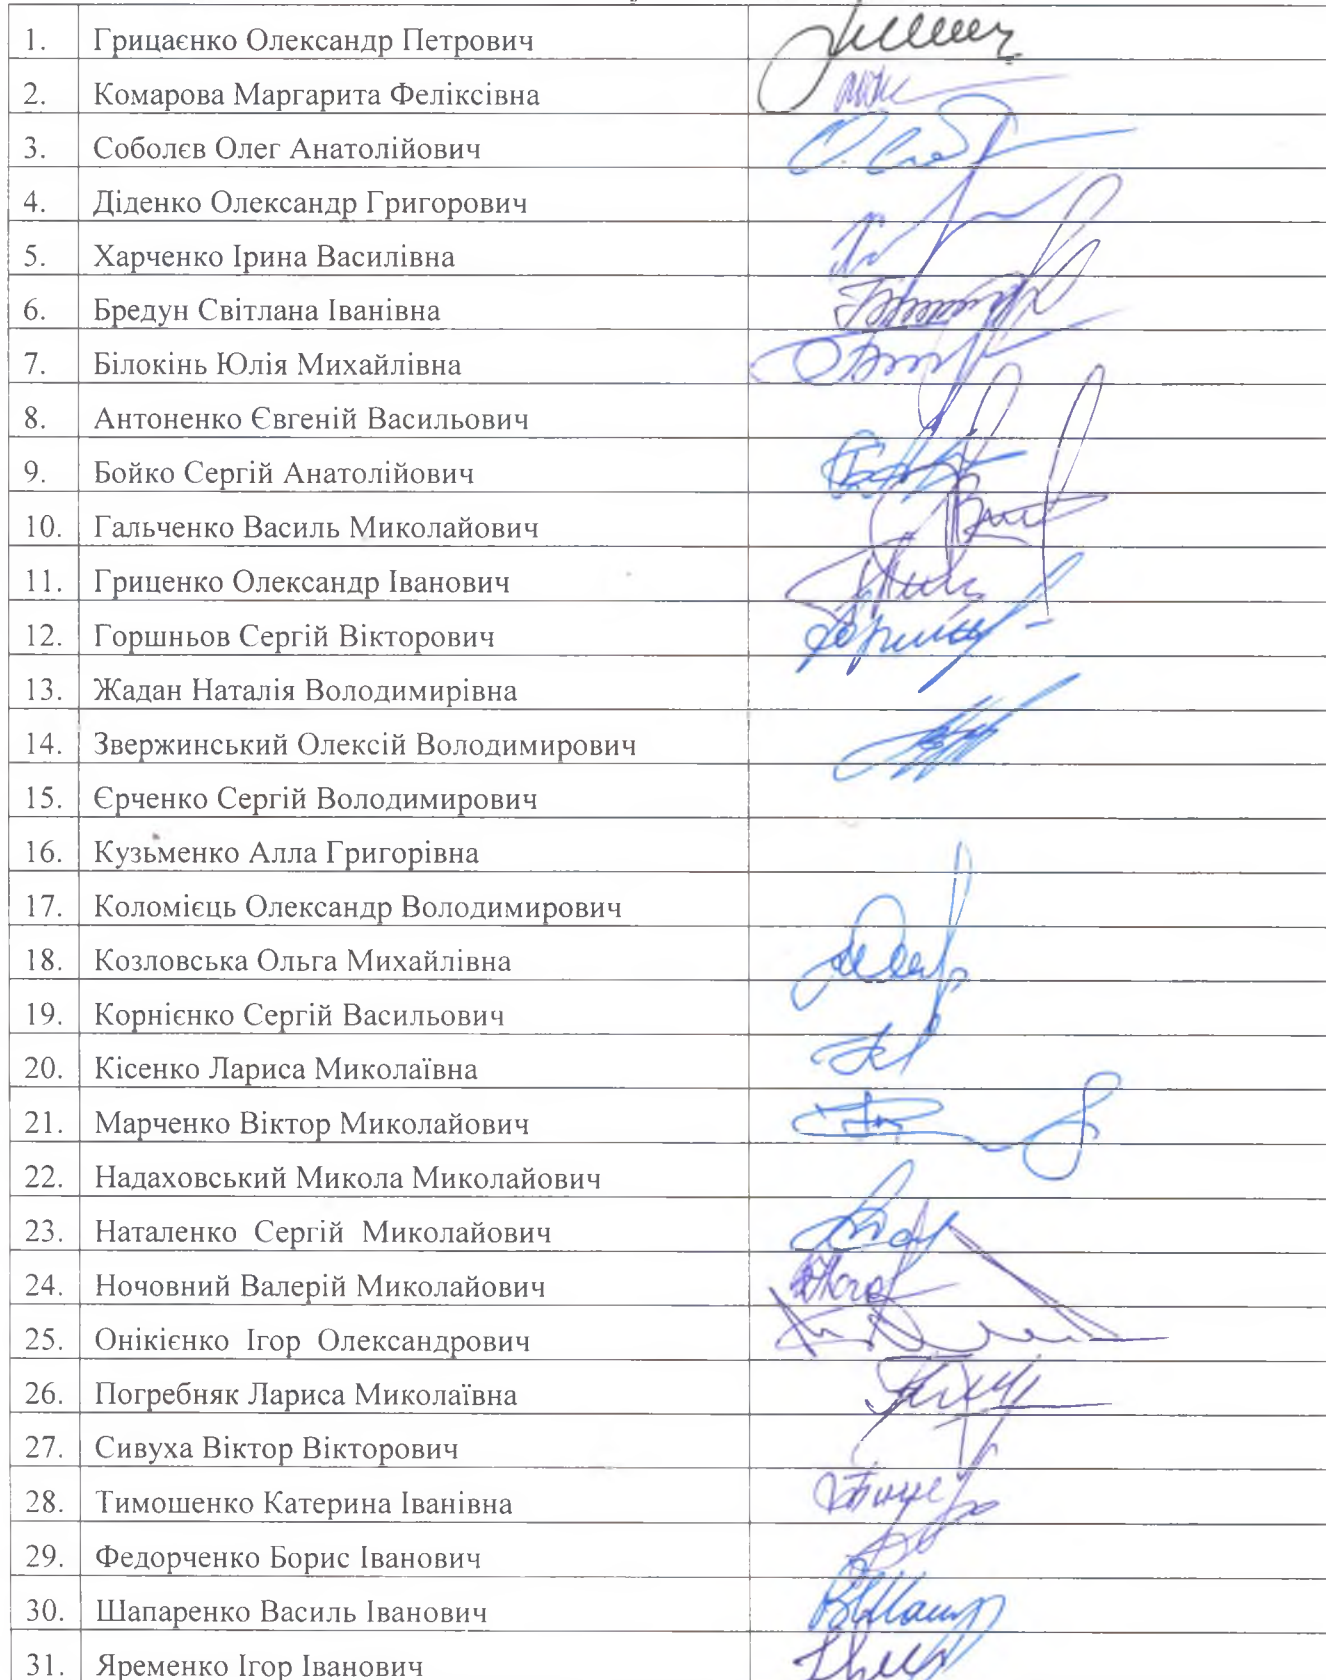 1. Грицаєнко Олександр Петрович
2. Комарова Маргарита Феліксівна
3. Соболєв Олег Анатолійович
4. Діденко Олександр Григорович
5. Харченко Ірина Василівна
6. Бредун Світлана Іванівна
7. Білокінь Юлія Михайлівна
8. Антоненко Євгеній Васильович
9. Бойко Сергій Анатолійович
10. Гальченко Василь Миколайович
11. Гриценко Олександр Іванович
12. Горшньов Сергій Вікторович
13. Жадан Наталія Володимирівна
14. Звержинський Олексій Володимирович
15. Єрченко Сергій Володимирович
16. Кузьменко Алла Григорівна
17. Коломієць Олександр Володимирович
18. Козловська Ольга Михайлівна
19. Корнієнко Сергій Васильович
20. Кісенко Лариса Миколаївна
21. Марченко Віктор Миколайович
22. Надаховський Микола Миколайович
23. Наталенко Сергій Миколайович
24. Ночовний Валерій Миколайович
25. Онікієнко Ігор Олександрович
26. Погребняк Лариса Миколаївна
27. Сивуха Віктор Вікторович
28. Тимошенко Катерина Іванівна
29. Федорченко Борис Іванович
30. Шапаренко Василь Іванович
31. Яременко Ігор Іванович